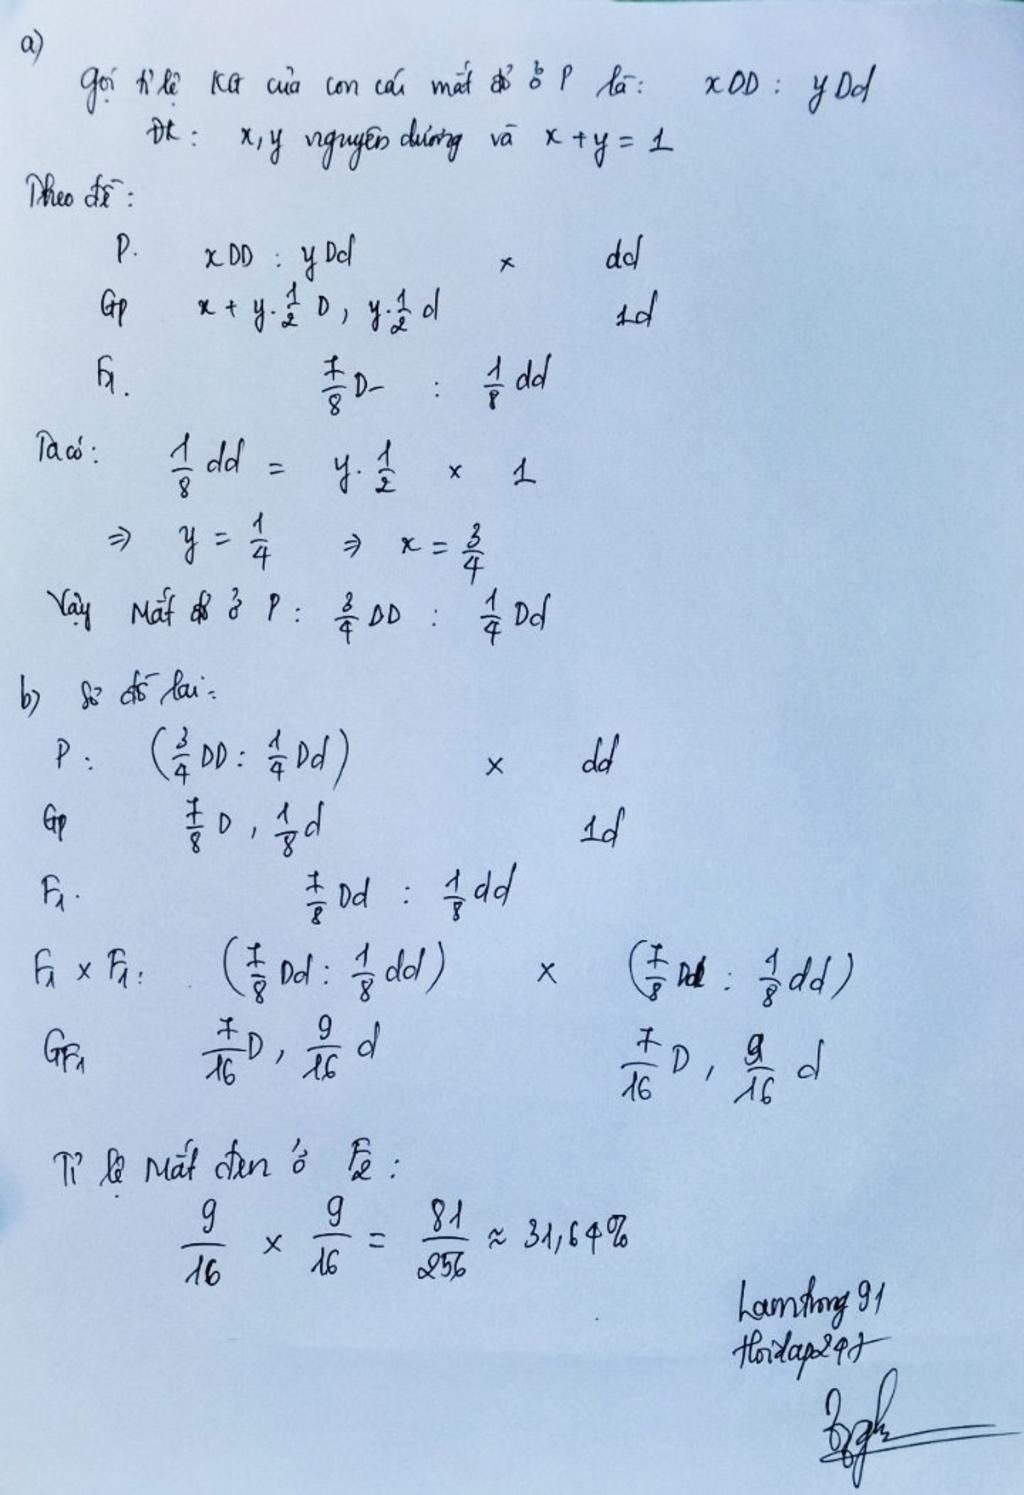 a)
Gọi tỉ lệ KG của con cái mắt đỏ ở P là: xDD : yDd
ĐK: x, y nguyên dương và x + y = 1
Theo đề:
P. xDD : yDd × dd
Gp x + y.1/2 D, y.1/2 d 1d
F1. 7/8 D- : 1/8 dd
Ta có: 1/8 dd = y.1/2 × 1
⇒ y = 1/4 ⇒ x = 3/4
Vậy Mắt đỏ ở P: 3/4 DD : 1/4 Dd
b) Sơ đồ lai:
P: (3/4 DD : 1/4 Dd) × dd
Gp 7/8 D, 1/8 d 1d
F1. 7/8 Dd : 1/8 dd
F1 × F1: (7/8 Dd : 1/8 dd) × (7/8 Dd : 1/8 dd)
GF1 7/16 D, 9/16 d 7/16 D, 9/16 d
Tỉ lệ Mắt đen ở F2:
9/16 × 9/16 = 81/256 ≈ 31,64%
Lamthong91
Hoidap247